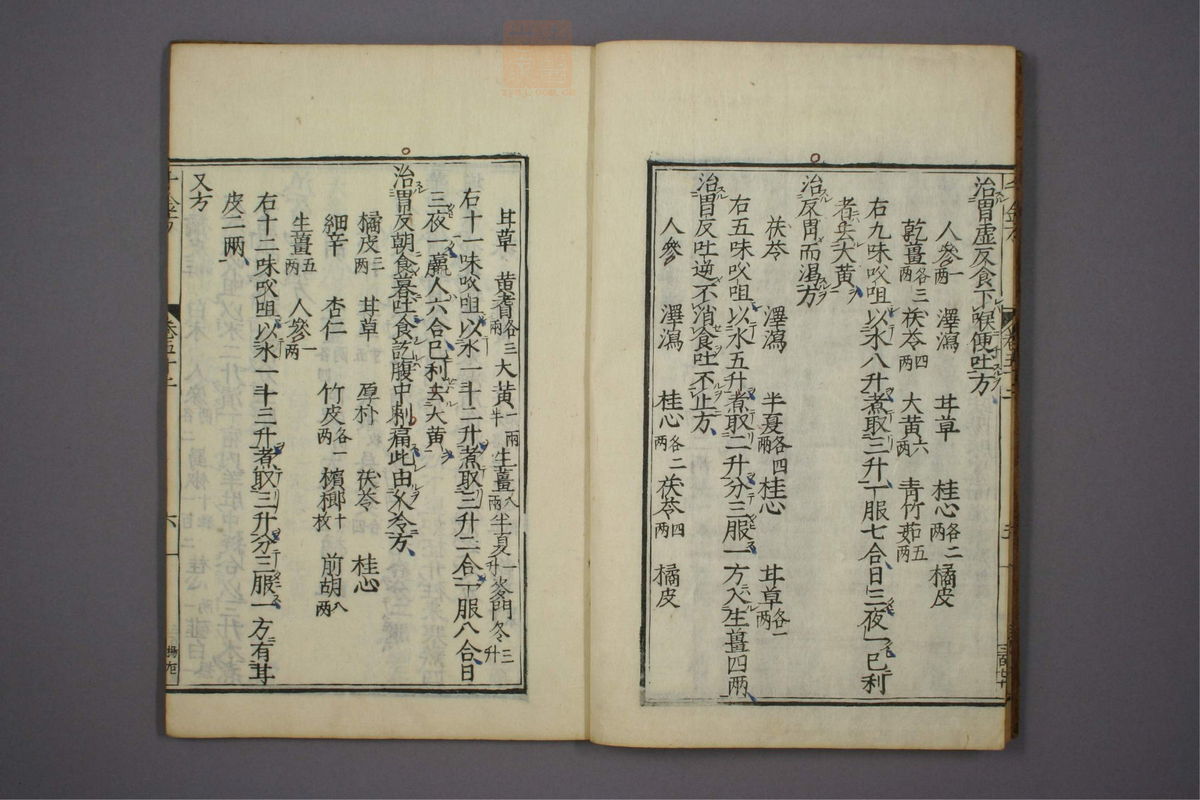 治胃虛反食下喉便吐方
人參一兩 澤瀉 甘草 桂心各二兩 橘皮
乾薑各三兩 茯苓四兩 大黃六兩 青竹茹五兩
右九味㕮咀以水八升煮取三升一服七合日三夜一已利
者去大黃
治反胃而渴方
茯苓 澤瀉 半夏各四兩 桂心 甘草各一兩
右五味㕮咀以水五升煮取二升分三服一方入生薑四兩
治胃反吐逆不消食吐不止方
人參 澤瀉 桂心各二兩 茯苓四兩 橘皮
甘草 黃耆各三兩 大黃一兩半 生薑八兩 半夏一升 麥門冬三升
右十一味㕮咀以水一斗二升煮取三升二合一服八合日
三夜一羸人六合已利去大黃
治胃反朝食暮吐食訖腹中刺痛此由久冷方
橘皮三兩 甘草 厚朴 茯苓 桂心
細辛 杏仁 竹皮各一兩 檳榔十枚 前胡八兩
生薑五兩 人參一兩
右十二味㕮咀以水一斗三升煮取三升分三服一方有甘
皮二兩
又方
千金方
卷五十二
六